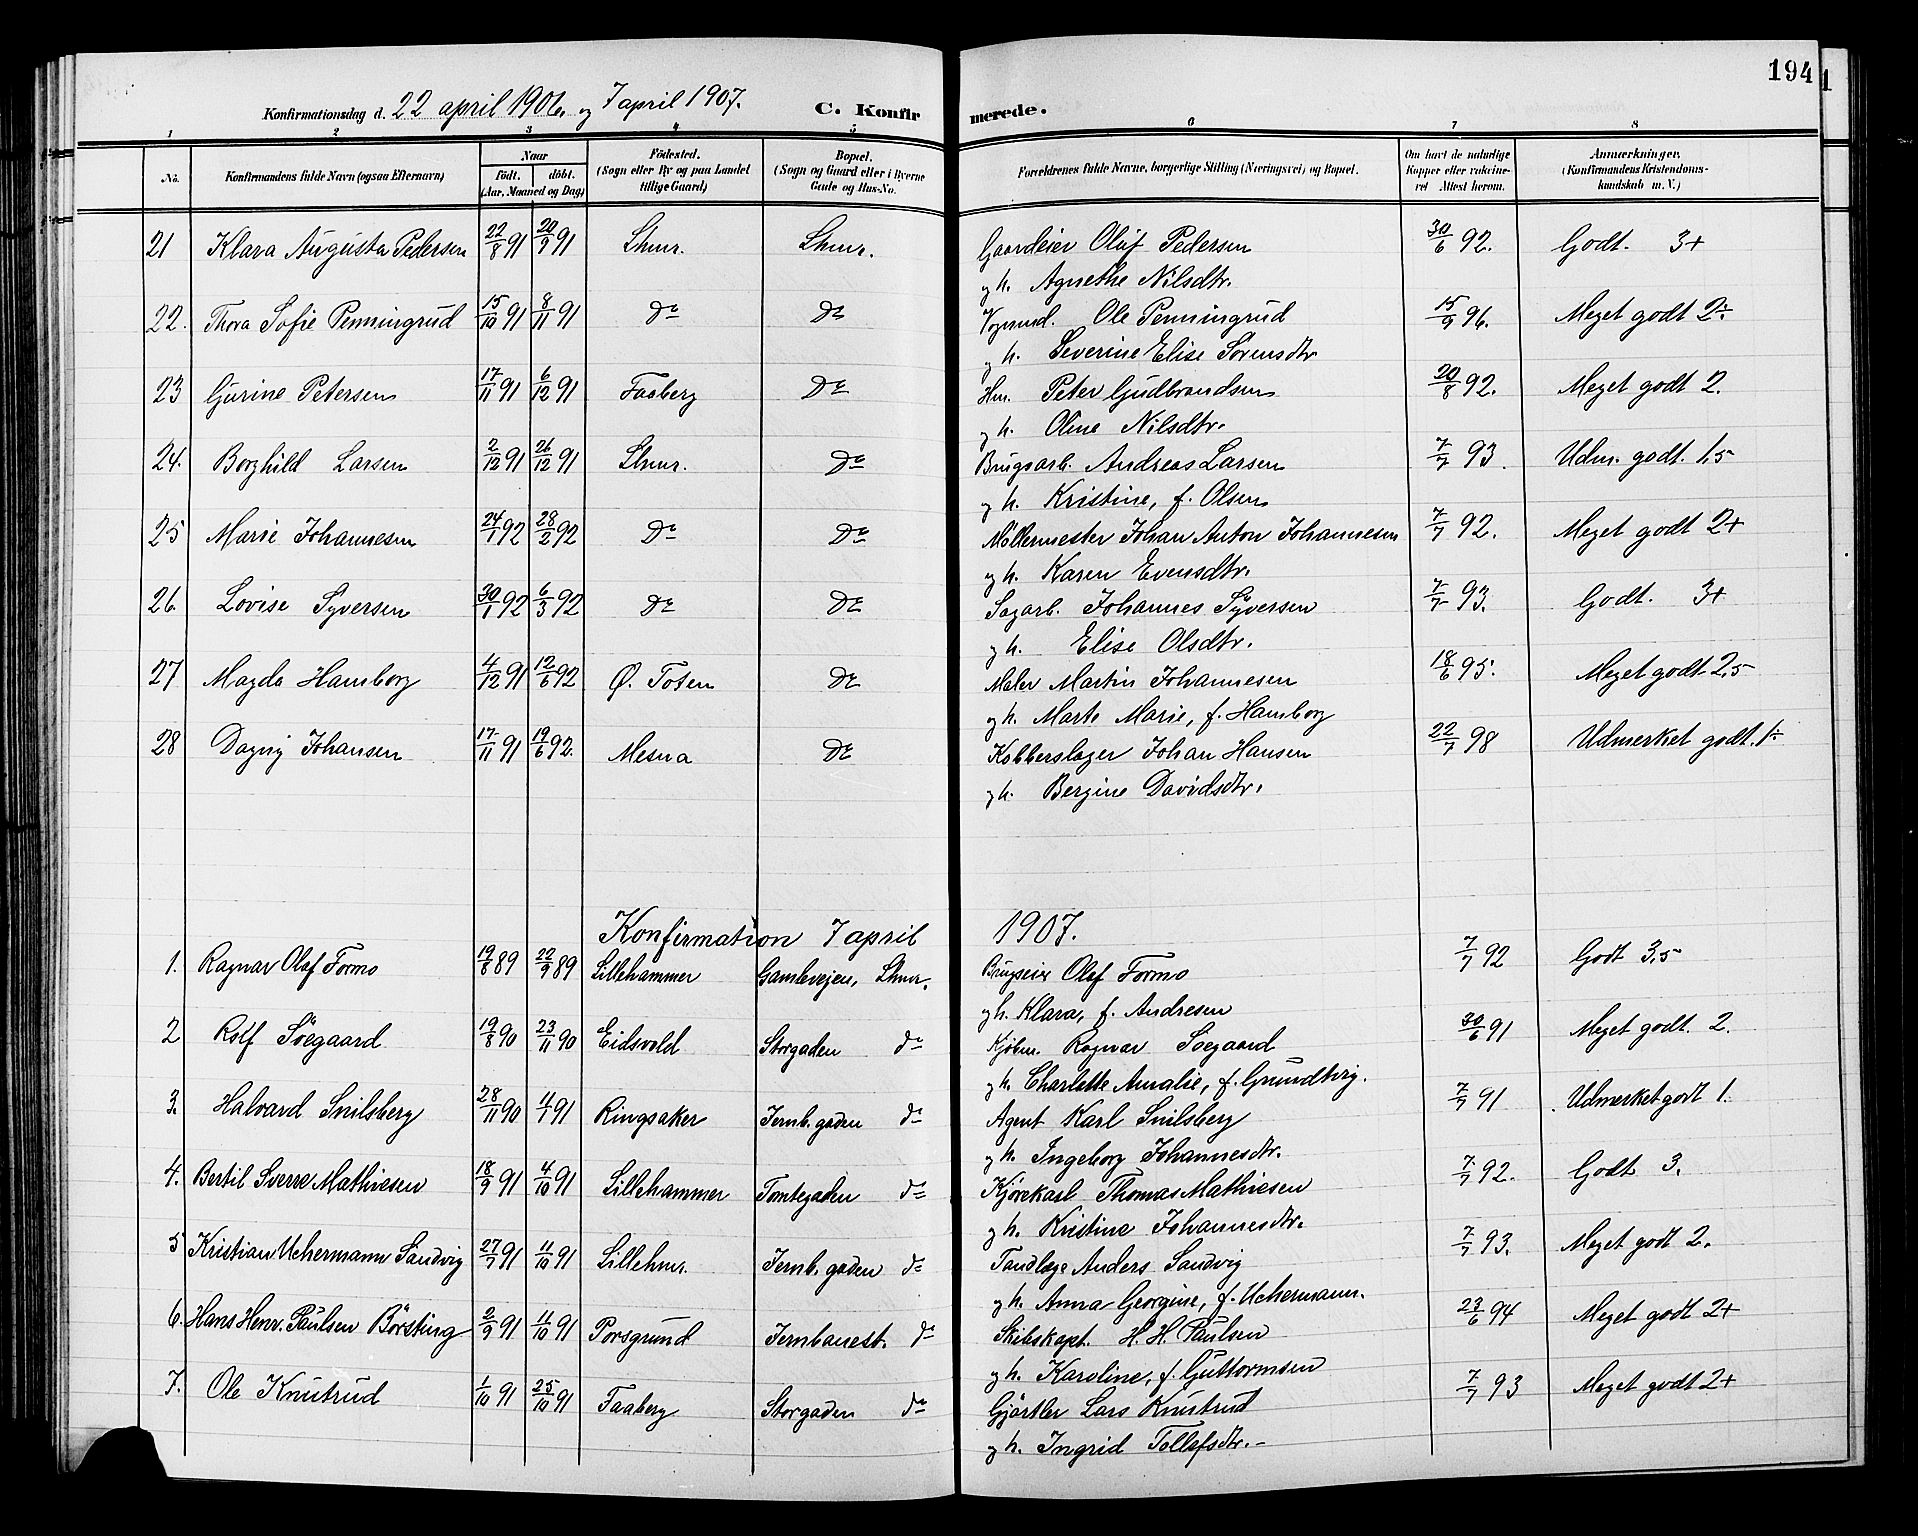 194
Konfirmationsdag d. 22 april 1906. og 7 april 1907. C. Konfirmerede.
1 2 3 4 5 6 7 8
No. Konfirmandens fulde Navn (ogsaa Efternavn) Naar født. døbt. (Aar, Maaned og Dag) Fødested. (Sogn eller By og paa Landet tillige Gaard) Bopæl. (Sogn og Gaard eller i Byerne Gade og Hus-No. Forældrenes fulde Navne, borgerlige Stilling (Næringsvei) og Bopæl. Om havt de naturlige Kopper eller vakcineret Attest herom. Anmærkninger. (Konfirmandens Kristendomskundskab m. V.)
21 Klara Augusta Pedersen 22/8 91 20/9 91 Lhmr. Lhmr. Gaardeier Oluf Pedersen 30/6 92. Godt. 3+
og h. Agnethe Nilsdtr.
22. Thora Sofie Penningrud 15/10 91 8/11 91 do do Vognmd. Ole Penningrud 15/9 96. Meget godt 2÷
og h. Severine Elise Sørensdtr
23 Gurine Petersen 17/11 91 6/12 91 Faaberg do Hm. Peter Gudbrandsen 20/8 92. Meget godt 2.
og h. Oline Nilsdtr.
24. Borghild Larsen 2/12 91 26/12 91 Lhmr. do Brugsarb. Andreas Larsen 7/7 93. Udm. godt. 1,5
og h. Kristine, f. Olsen
25 Marie Johannesen 24/1 92 28/2 92 do do Møllermester Johan Anton Johannesen 7/7 92. Meget godt 2+
og h. Karen Evensdtr.
26. Lovise Syversen 30/1 92 6/3 92 do do Sagarb. Johannes Syversen 7/7 93. Godt. 3+
og h. Elise Olsdtr.
27 Magda Hamborg 4/12 91 12/6 92 Ø. Toten do Maler Martin Johannesen 18/6 95. Meget godt 2,5
og h. Marte Marie, f. Hamborg
28 Dagny Johansen 17/11 91 19/6 92. Mesna do Kobberslager Johan Hansen 22/7 98 Udmerket godt. 1÷
og h. Bergine Davidsdtr.
Konfirmation 7 april 1907.
1. Ragnar Olaf Formo 19/8 89 22/9 89 Lillehammer Gamlevejen, Lhmr. Brugseier Olaf Formo 7/7 92 Godt 3,5
og h. Klara, f. Andresen
2 Rolf Söegaard 19/8 90 23/11 90 Eidsvold Storgaden do Kjøbm. Ragnar Soegaard 30/6 91 Meget godt. 2.
og h. Charlotte Amalie, f. Grundtvig.
3. Halvard Snilsberg 28/11 90 4/1 91 Ringsaker Jernb. gaden do Agent Karl Snilsberg 7/7 91 Udmerket godt 1.
og h. Ingeborg Johannesdtr.
4. Bertil Sverre Mathiesen 18/9 91 4/10 91 Lillehammer Tomtegaden do Kjørekarl Thomas Mathiesen 7/7 92. Godt 3.
og h. Kristine Johannesdtr.
5 Kristian Uchermann Sandvig 27/7 91 11/10 91 Lillehmr. Jernb. gaden do Tandlæge Anders Sandvig 7/7 93. Meget godt 2.
og h. Anna Georgine, f. Uchermann.
6. Hans Henr. Paulsen Börsting 2/9 91 11/10 91 Porsgrund Jernbanest. do Skibskapt. H. H. Paulsen 23/6 94 Meget godt 2+
og h. Karoline, f. Guttormsen
7. Ole Knutrud 1/10 91 25/10 91 Faaberg Storgaden do Gjørtler Lars Knutrud 7/7 93 Meget godt 2+
og h. Ingrid Tollefsdtr.